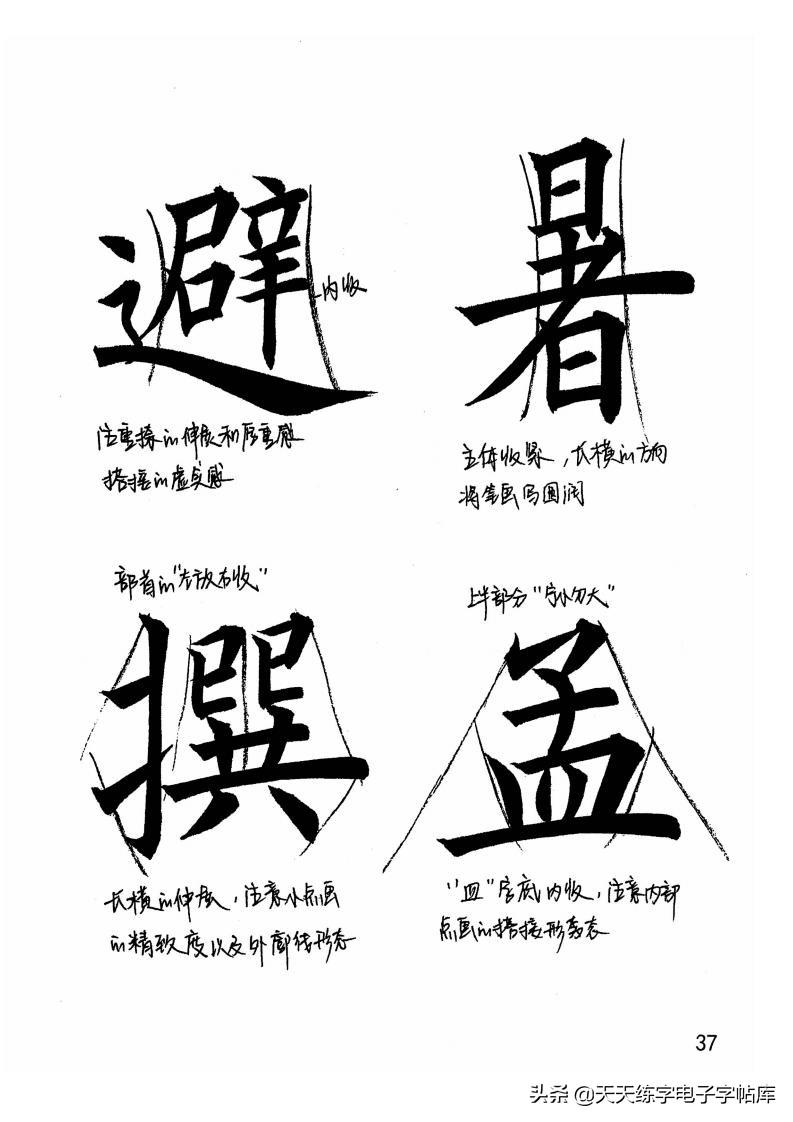 避
内收
注重捺的伸展和厚重感
搭接的虚实感
暑
主体收紧，长横的方向
将笔画写圆润
部首的“左放右收”
撰
长横的伸展，注意小点画
的精致度以及外廓线形态
上半部分“宁小勿大”
孟
“皿”字底内收，注意内部
点画的搭接形态
37
头条 @天天练字电子字帖库